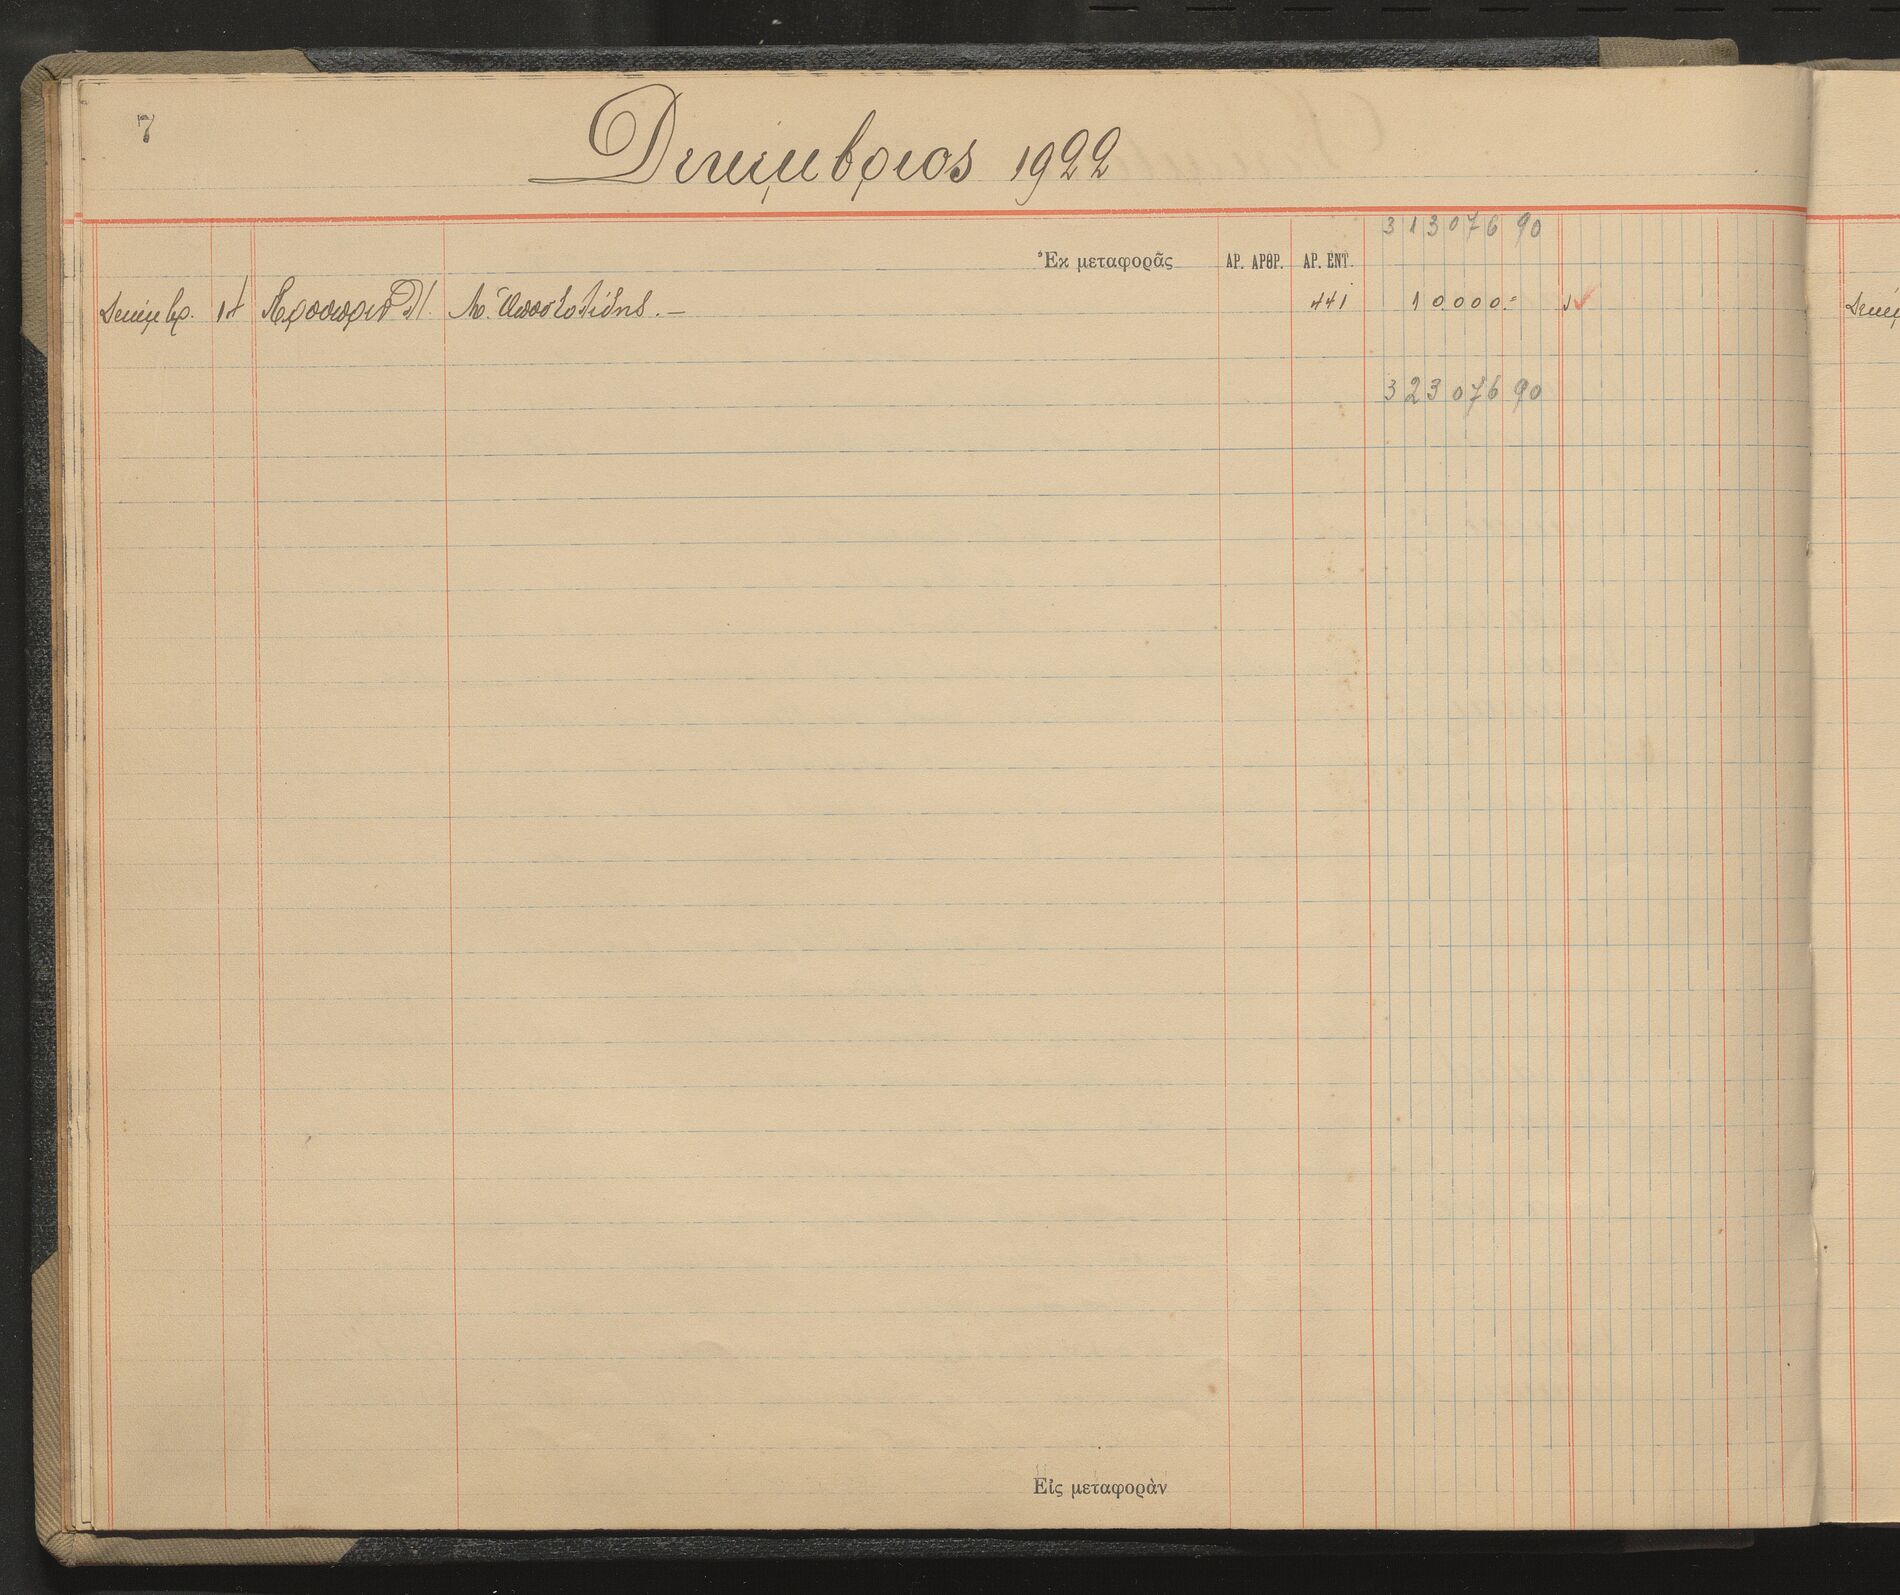 7
Δεκέμβριος 1922
313076 90
Ἐκ μεταφορᾶς ΑΡ. ΑΡΘΡ. ΑΡ. ΕΝΤ.
Δεκέμβρ. 14 Ἀποστολίδης. — 441 10.000.= Δεκέμ
323076 90
Εἰς μεταφορὰν